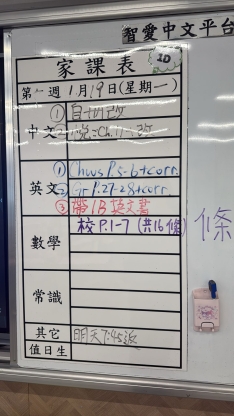 智愛中文平台
家課表
1D
第一週 1月19日(星期一)
中文
英文
① Chaus P.5-6+corr.
② Gr P.27-28+corr.
③ 帶1B英文書
數學
校P.1-7 (共16條)
條
常識
其它
明天7:45派
值日生